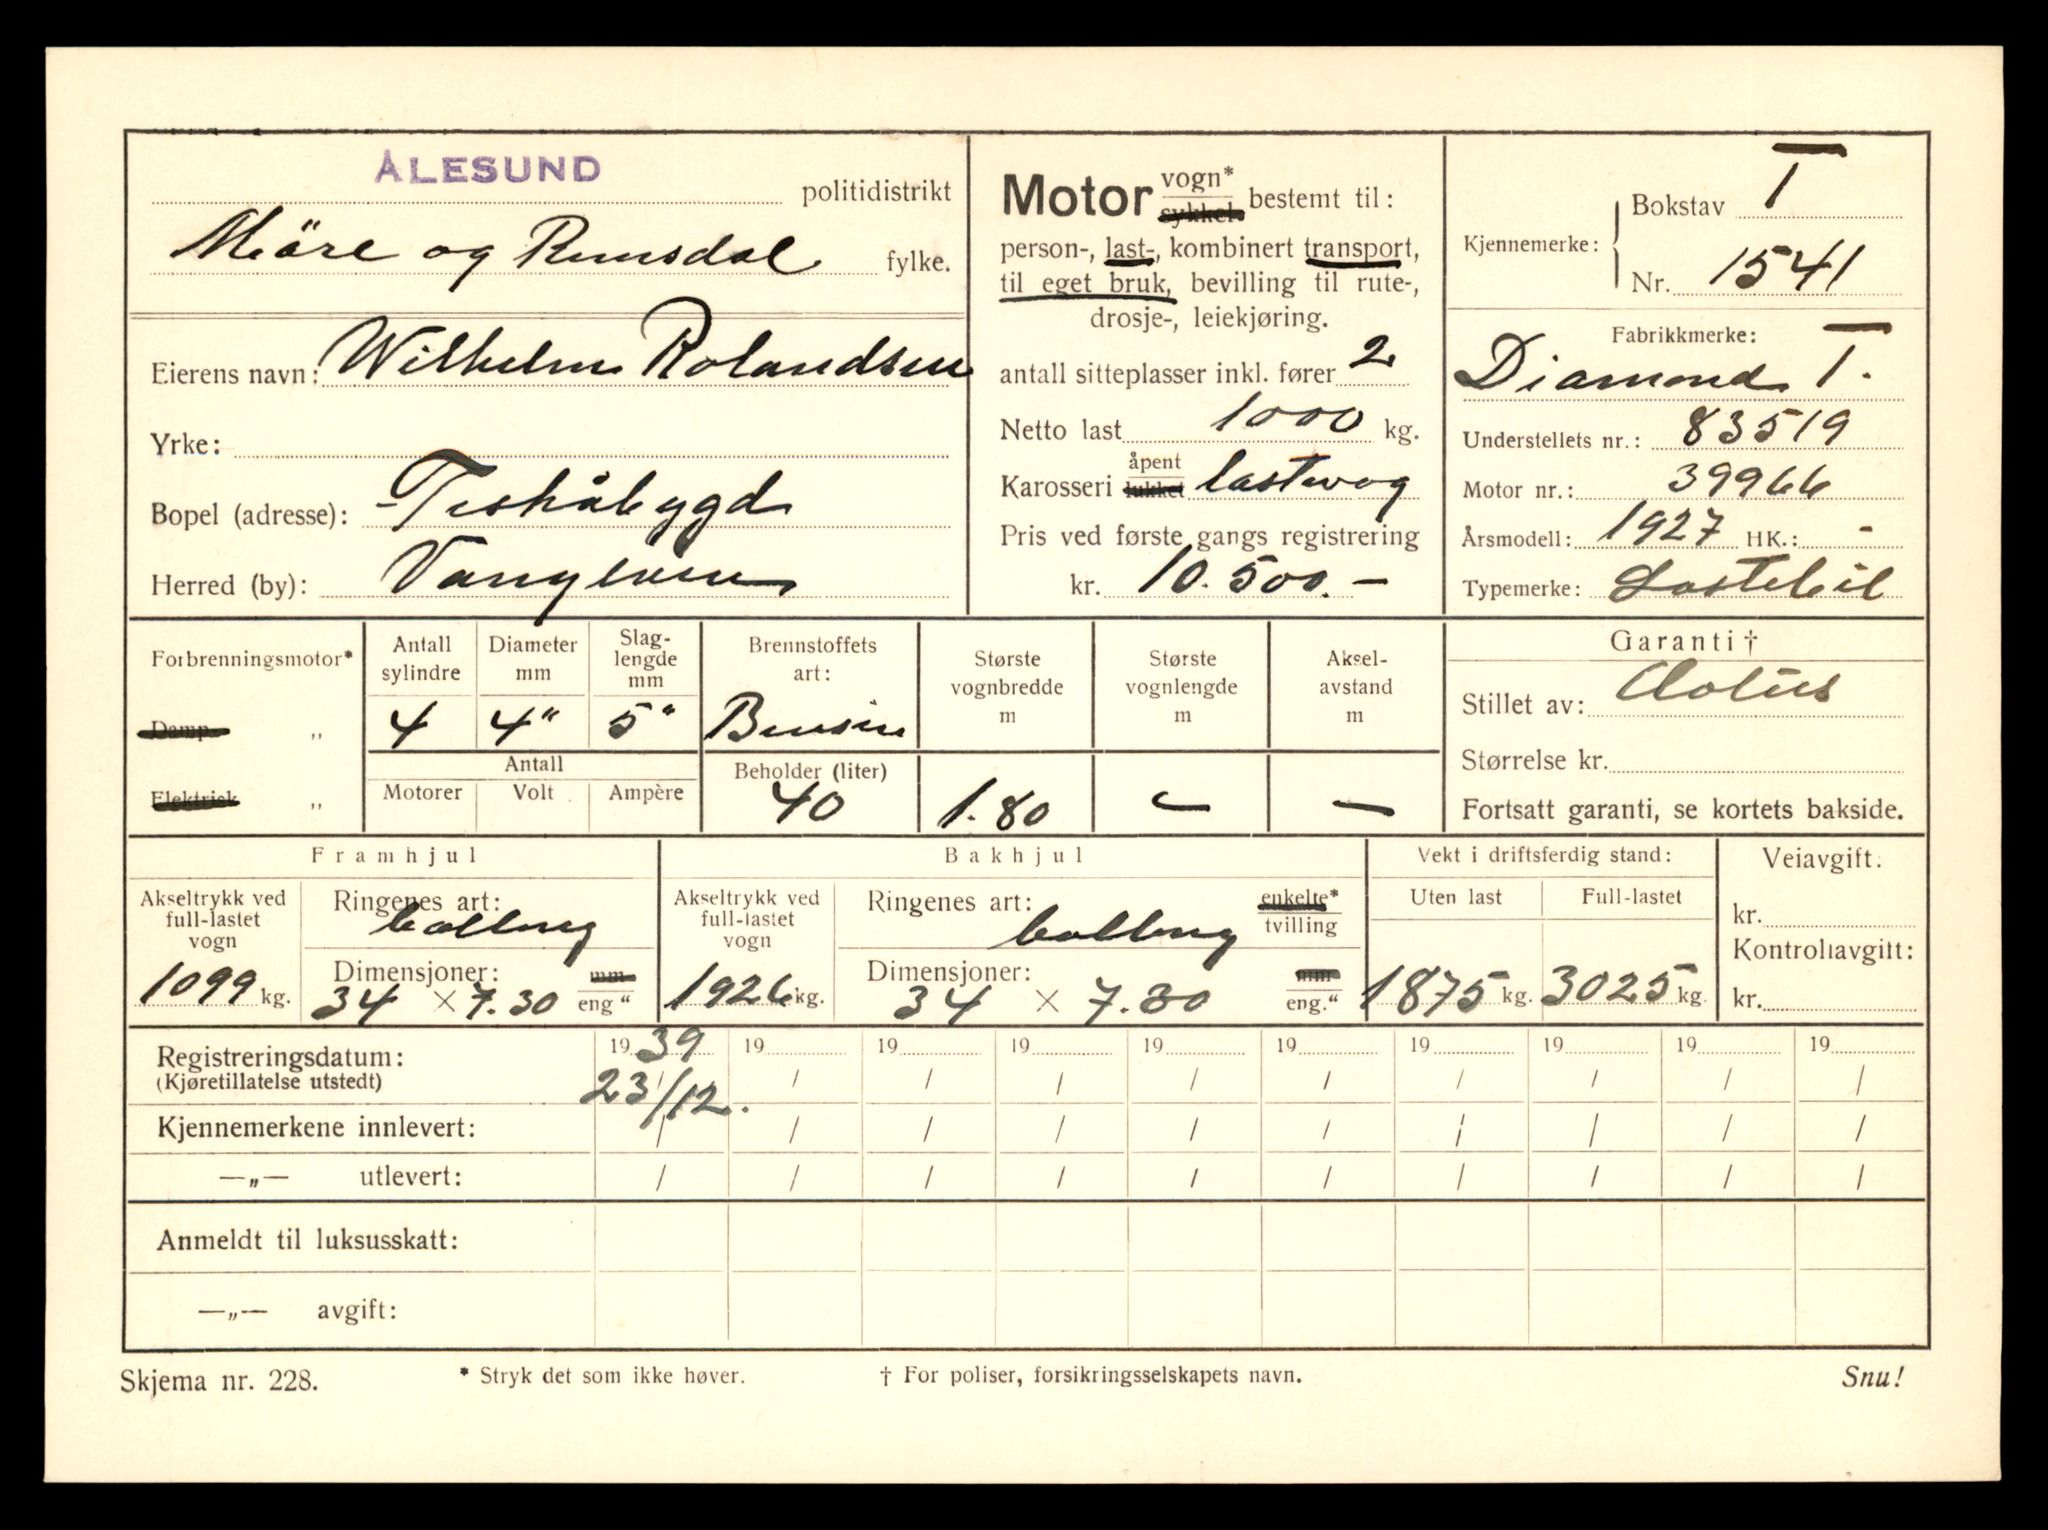 ÅLESUND politidistrikt
Möre og Rumsdal fylke.
Eierens navn: Wilhelm Rolandsen
Yrke:
Bopel (adresse):
Herred (by): Vanylven
Motor vogn* sykkel bestemt til:
person-, last-, kombinert transport,
til eget bruk, bevilling til rute-,
drosje-, leiekjøring.
antall sitteplasser inkl. fører 2
Netto last 1000 kg.
Karosseri åpent lukket lastevog
Pris ved første gangs registrering
kr. 10.500.-
Kjennemerke: Bokstav T
Nr. 1541
Fabrikkmerke:
Diamond T.
Understellets nr.: 83519
Motor nr.: 39966
Årsmodell: 1927 HK.: -
Typemerke: Lastebil
Forbrenningsmotor*
Damp- „
Elektrisk „
Antall sylindre
4
Diameter mm
4"
Slag-lengde mm
5"
Antall
Motorer Volt Ampère
Brennstoffets art:
Bensin
Beholder (liter)
40
Største vognbredde m
1.80
Største vognlengde m
-
Aksel-avstand m
-
Garanti †
Stillet av: Aolus
Størrelse kr.
Fortsatt garanti, se kortets bakside.
Framhjul
Akseltrykk ved full-lastet vogn
1099 kg.
Ringenes art: ballong
Dimensjoner: mm
34 × 7.30 eng "
Bakhjul
Akseltrykk ved full-lastet vogn
1926 kg.
Ringenes art: ballong enkelte* tvilling
Dimensjoner: mm
34 × 7.30 eng."
Vekt i driftsferdig stand:
Uten last Full-lastet
1875 kg. 3025 kg.
Veiavgift:
kr.
Kontrollavgift:
kr.
Registreringsdatum: 1939 19 19 19 19 19 19 19 19 19
(Kjøretillatelse utstedt) 23/12. / / / / / / / / /
Kjennemerkene innlevert: / / / / / / / / / /
—„— utlevert: / / / / / / / / / /
Anmeldt til luksusskatt:
—„— avgift:
Skjema nr. 228. * Stryk det som ikke høver. † For poliser, forsikringsselskapets navn. Snu!